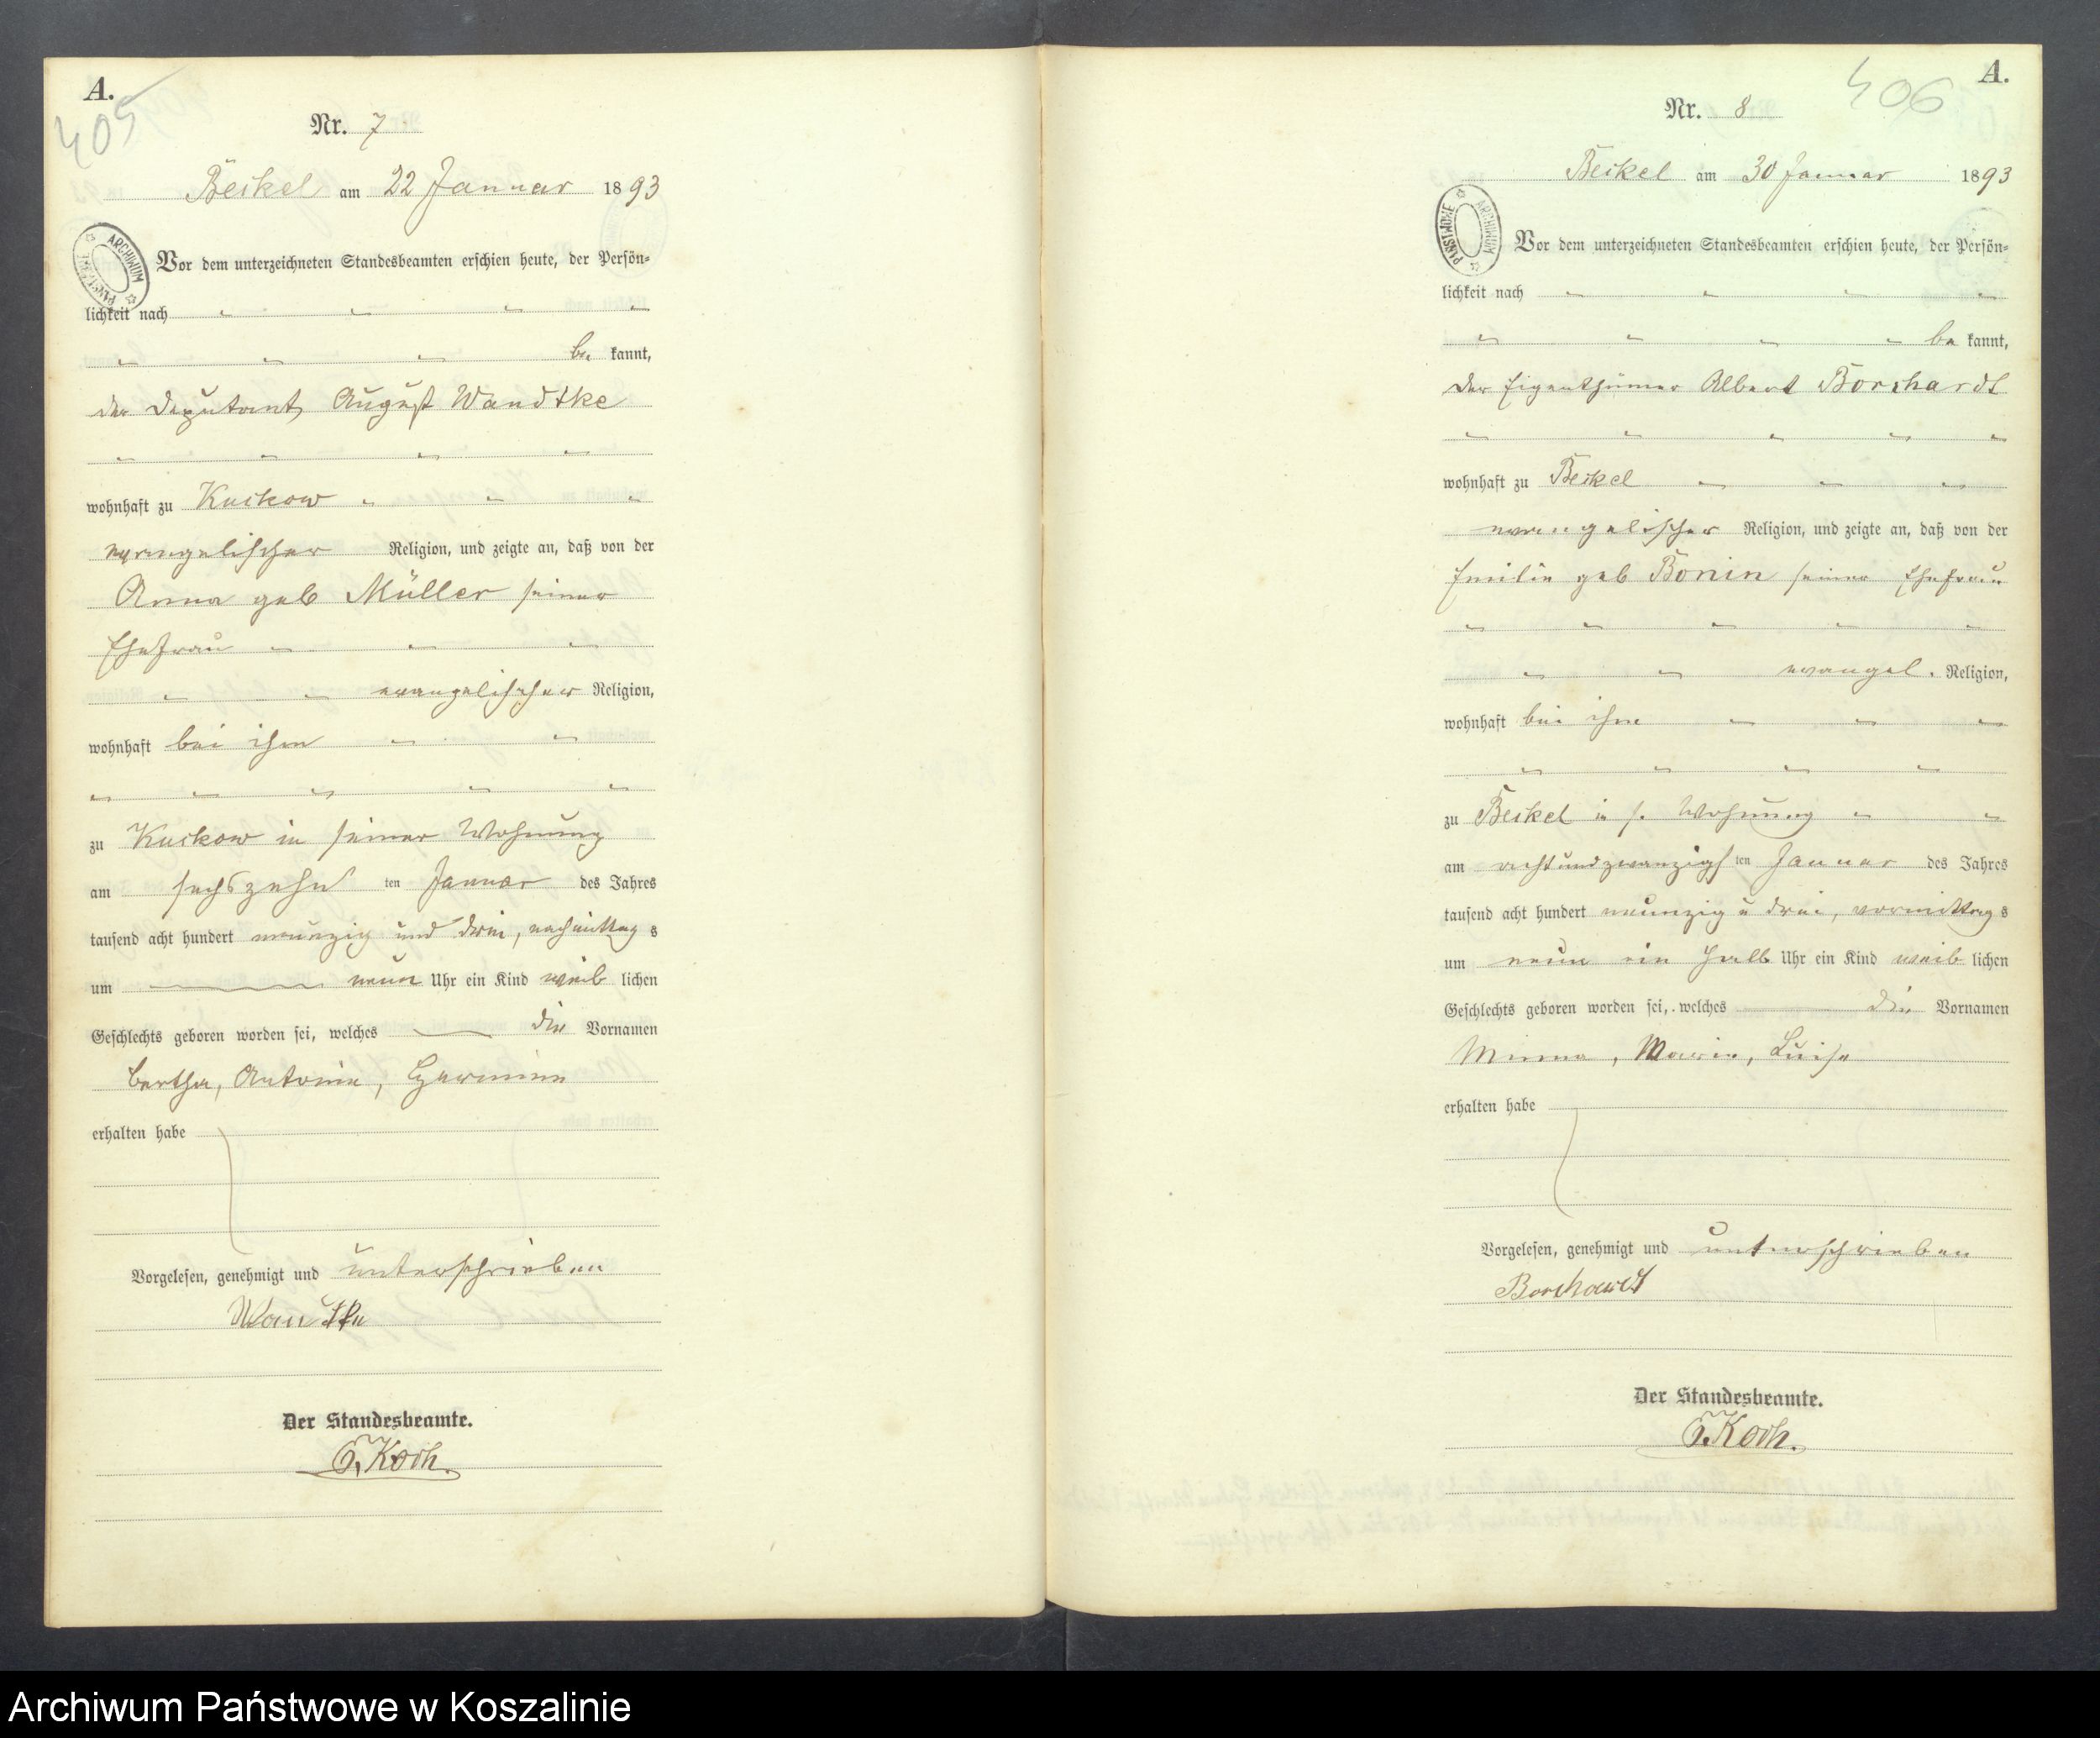 A.
405
Nr. 7
Beikel am 22 Januar 1893
Vor dem unterzeichneten Standesbeamten erschien heute, der Persön-
lichkeit nach
be kannt,
der Deputant August Wandtke
wohnhaft zu Kuckow
evangelischer Religion, und zeigte an, daß von der
Anna geb Müller seiner
Ehefrau
evangelischer Religion,
wohnhaft bei ihm
zu Kuckow in seiner Wohnung
am sechszehn ten Januar des Jahres
tausend acht hundert neunzig und drei, nachmittag s
um neun Uhr ein Kind weib lichen
Geschlechts geboren worden sei, welches die Vornamen
Bertha, Antonie, Hermine
erhalten habe
Vorgelesen, genehmigt und unterschrieben
Wandtke
Der Standesbeamte.
G. Koch.
ARCHIWUM PAŃSTWOWE
A.
406
Nr. 8
Beikel am 30 Januar 1893
Vor dem unterzeichneten Standesbeamten erschien heute, der Persön-
lichkeit nach
be kannt,
der Eigenthümer Albert Borchardt
wohnhaft zu Beikel
evangelischer Religion, und zeigte an, daß von der
Emilie geb Bonin seiner Ehefrau
evangel. Religion,
wohnhaft bei ihm
zu Beikel in s. Wohnung
am achtundzwanzigs ten Januar des Jahres
tausend acht hundert neunzig u drei, vormittag s
um neun ein halb Uhr ein Kind weib lichen
Geschlechts geboren worden sei, welches die Vornamen
Minna, Marie, Luise
erhalten habe
Vorgelesen, genehmigt und unterschrieben
Borchardt
Der Standesbeamte.
G. Koch.
ARCHIWUM PAŃSTWOWE
Archiwum Państwowe w Koszalinie